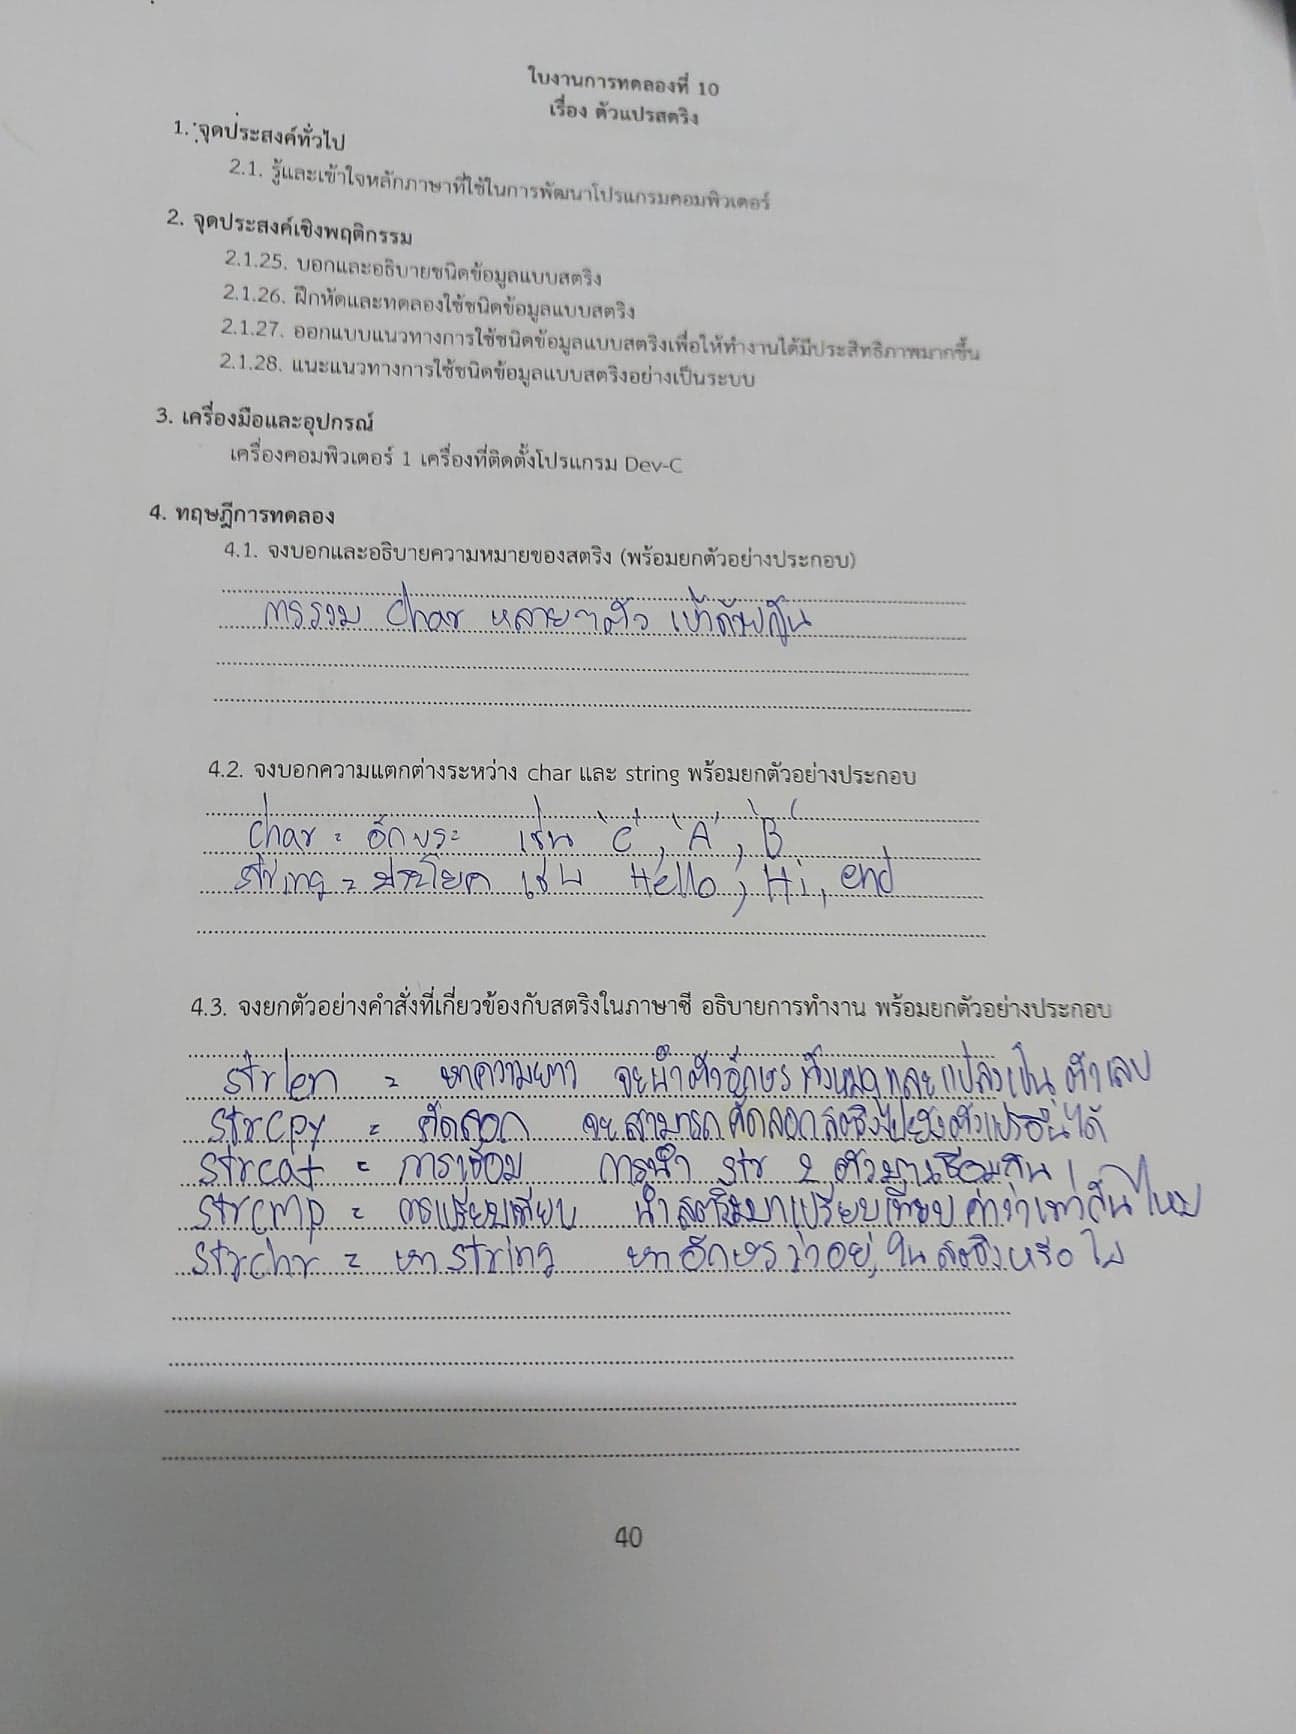 ใบงานการทดลองที่ 10
เรื่อง ตัวแปรสตริง
1. จุดประสงค์ทั่วไป
2.1. รู้และเข้าใจหลักภาษาที่ใช้ในการพัฒนาโปรแกรมคอมพิวเตอร์
2. จุดประสงค์เชิงพฤติกรรม
2.1.25. บอกและอธิบายชนิดข้อมูลแบบสตริง
2.1.26. ฝึกหัดและทดลองใช้ชนิดข้อมูลแบบสตริง
2.1.27. ออกแบบแนวทางการใช้ชนิดข้อมูลแบบสตริงเพื่อให้ทำงานได้มีประสิทธิภาพมากขึ้น
2.1.28. แนะแนวทางการใช้ชนิดข้อมูลแบบสตริงอย่างเป็นระบบ
3. เครื่องมือและอุปกรณ์
เครื่องคอมพิวเตอร์ 1 เครื่องที่ติดตั้งโปรแกรม Dev-C
4. ทฤษฎีการทดลอง
4.1. จงบอกและอธิบายความหมายของสตริง (พร้อมยกตัวอย่างประกอบ)
การรวม char หลายๆตัว เข้าด้วยกัน
4.2. จงบอกความแตกต่างระหว่าง char และ string พร้อมยกตัวอย่างประกอบ
char = อักขระ เช่น 'c', 'A', 'B'
string = ประโยค เช่น Hello, Hi, end
4.3. จงยกตัวอย่างคำสั่งที่เกี่ยวข้องกับสตริงในภาษาซี อธิบายการทำงาน พร้อมยกตัวอย่างประกอบ
strlen = หาความยาว จะนำตัวอักษรทั้งหมดและแปลงเป็นตัวเลข
strcpy = คัดลอก จะสามารถคัดลอกสตริงไปยังตัวแปรอื่นได้
strcat = การเชื่อม การนำ str 2 ตัวมาเชื่อมกัน
strcmp = การเปรียบเทียบ นำสตริงมาเปรียบเทียบค่าว่าเท่ากันไหม
strchr = หา string หาอักษรว่าอยู่ในสตริงหรือไม่
40